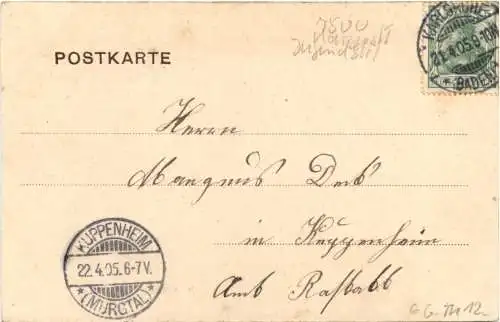 7500
Karlsruhe
Jugendstil
POSTKARTE
KARLSRUHE
21.4.05.8-10N.
* (BADEN)
Herrn
Magnus
in Kuppenheim
Amt Rastatt
KUPPENHEIM
22.4.05.6-7V.
* (MURGTAL) *